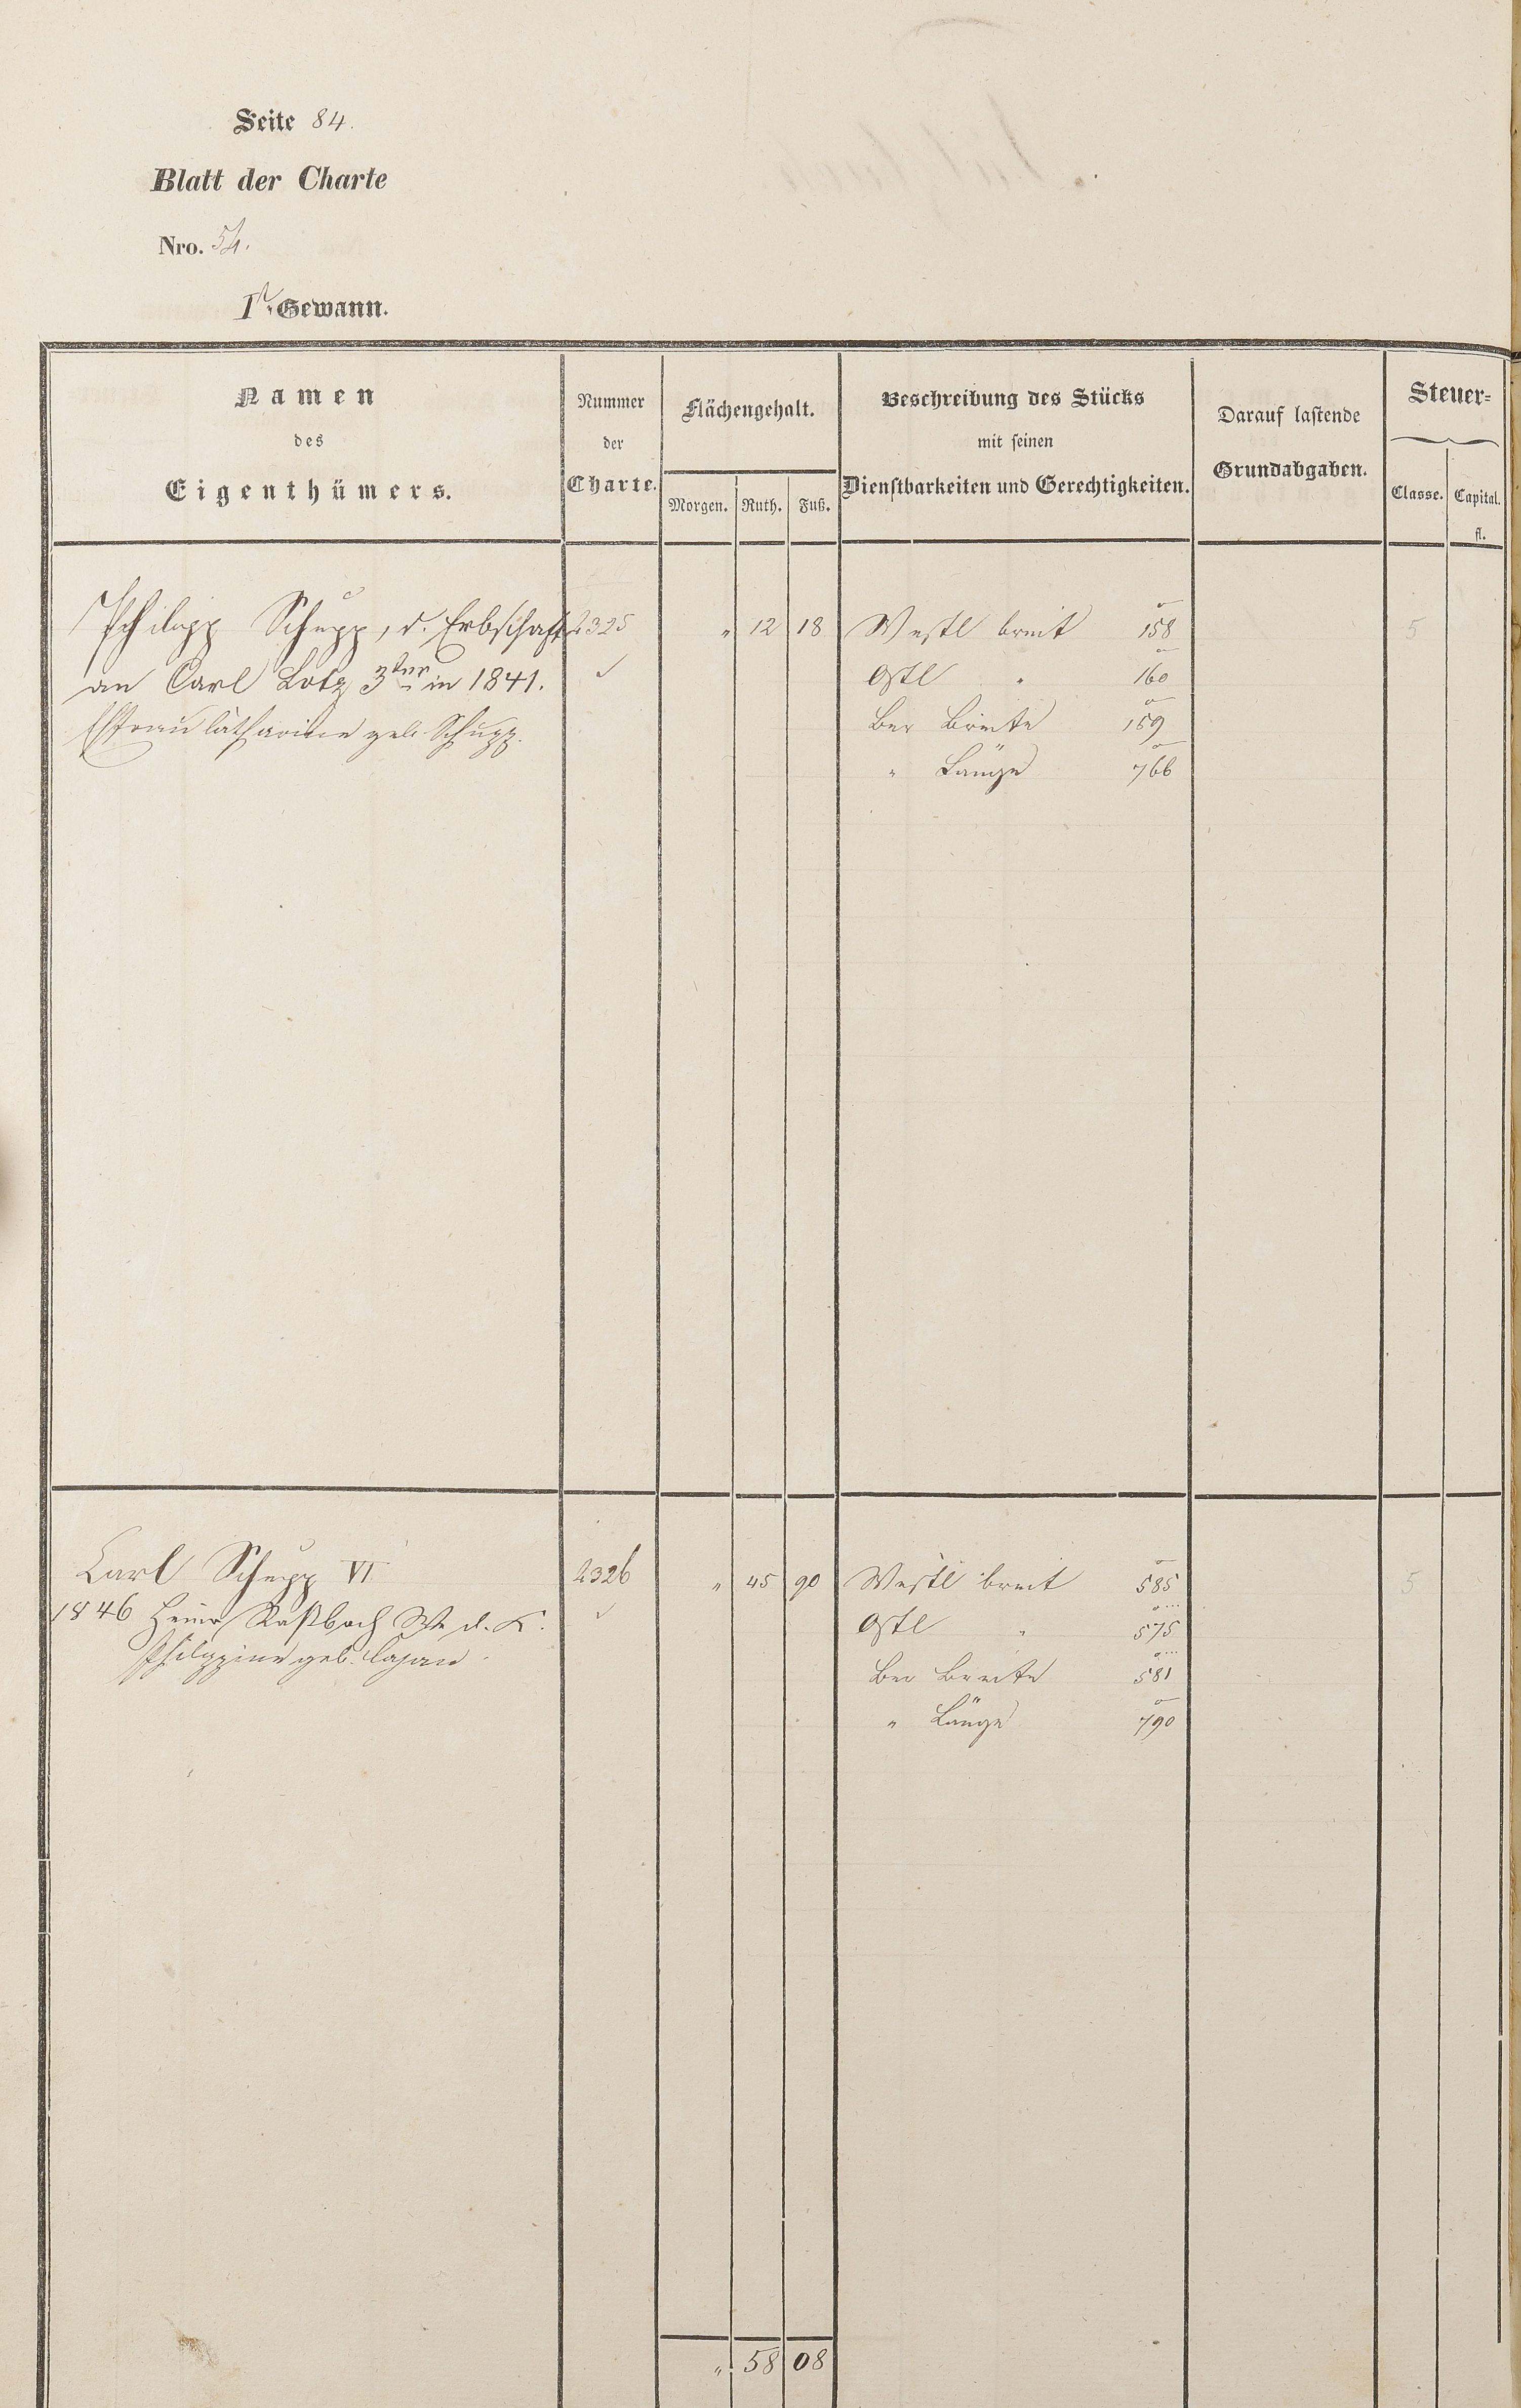 Seite 84.
Blatt der Charte
Nro. 54.
1r Gewann.
Namen
des
Eigenthümers.
Nummer
der
Charte.
Flächengehalt.
Morgen. Ruth. Fuß.
Beschreibung des Stücks
mit seinen
Dienstbarkeiten und Gerechtigkeiten.
Darauf lastende
Grundabgaben.
Steuer=
Classe. Capital.
fl.
Philipp Schupp, d. Erbschaft 2325 " 12 18 Westl breit 158 5
an Carl Lotz 3ter in 1841. Ostl " 160
Ehefrau Catharine geb Schupp. Ber Breite 159
" Länge 766
Carl Schupp VI 2326 " 45 90 Westl breit 585 5
1846 Heinr Raßbach We d. K. Ostl " 575
Philippine geb. Ber Breite 581
" Länge 790
" 58 08